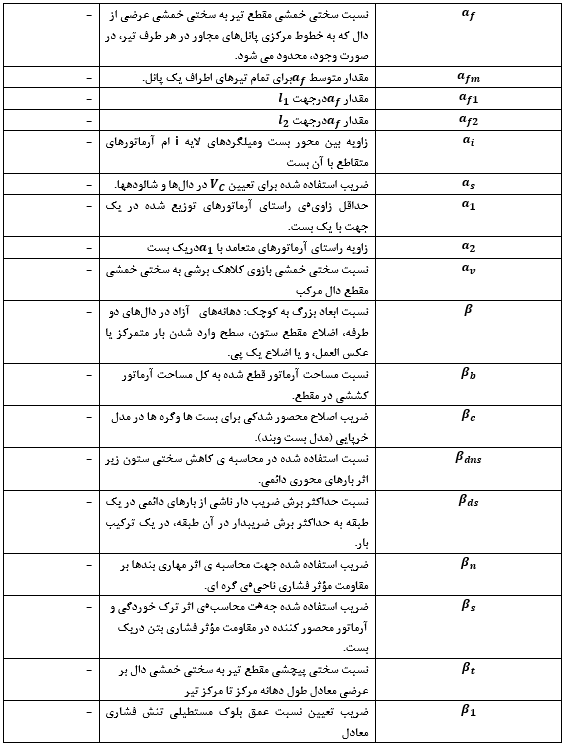 a_f نسبت سختی خمشی مقطع تیر به سختی خمشی عرضی از –
دال که به خطوط مرکزی پانل‌های مجاور در هر طرف تیر، در
صورت وجود، محدود می شود.
a_fm مقدار متوسط a_f برای تمام تیرهای اطراف یک پانل. –
a_f1 مقدار a_f درجهت l_1 –
a_f2 مقدار a_f درجهت l_2 –
a_i زاویه بین محور بست ومیلگردهای لایه i ام آرماتورهای –
متقاطع با آن بست
a_s ضریب استفاده شده برای تعیین V_C در دال‌ها و شالودهها. –
a_1 حداقل زاویه‌ی راستای آرماتورهای توزیع شده در یک –
جهت با یک بست.
a_2 زاویه راستای آرماتورهای متعامد با a_1 دریک بست –
a_v نسبت سختی خمشی بازوی کلاهک برشی به سختی خمشی –
مقطع دال مرکب
β نسبت ابعاد بزرگ به کوچک: دهانه‌های آزاد در دال‌های دو –
طرفه، اضلاع مقطع ستون، سطح وارد شدن بار متمرکز یا
عکس العمل، و یا اضلاع یک پی.
β_b نسبت مساحت آرماتور قطع شده به کل مساحت آرماتور –
کششی در مقطع.
β_c ضریب اصلاح محصور شدگی برای بست ها وگره ها در مدل –
خرپایی (مدل بست وبند).
β_dns نسبت استفاده شده در محاسبه ی کاهش سختی ستون زیر –
اثر بارهای محوری دائمی.
β_ds نسبت حداکثر برش ضریب دار ناشی از بارهای دائمی در یک –
طبقه به حداکثر برش ضریبدار در آن طبقه، در یک ترکیب
بار.
β_n ضریب استفاده شده جهت محاسبه ی اثر مهاری بندها بر –
مقاومت مؤثر فشاری ناحیه‌ی گره ای.
β_s ضریب استفاده شده جهت محاسبه‌ی اثر ترک خوردگی و –
آرماتور محصور کننده در مقاومت مؤثر فشاری بتن دریک
بست.
β_t نسبت سختی پیچشی مقطع تیر به سختی خمشی دال بر –
عرضی معادل طول دهانه مرکز تا مرکز تیر
β_1 ضریب تعیین نسبت عمق بلوک مستطیلی تنش فشاری –
معادل